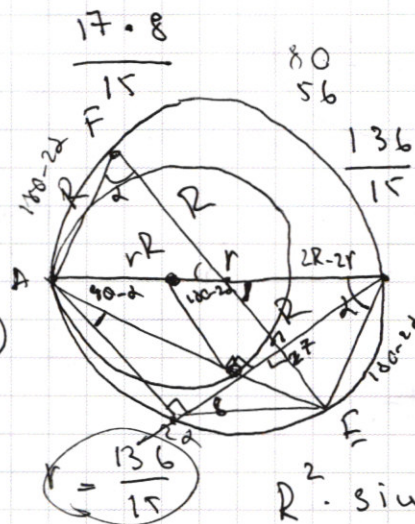 17 · 8
15
80
56
136
15
F
180-2α
R
α
R
A
r
R
r
2R-2r
90-α
180-2α
R
α
17
180-2α
8
2α
E
r = 136
15
R² · sin